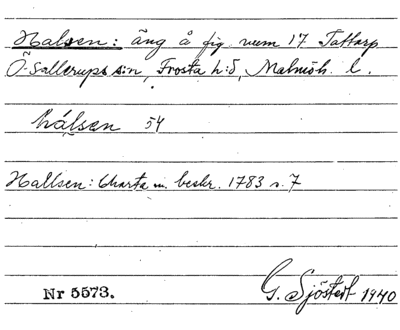 Halsen: äng å fig. num 17 Tattarp
Ö-Sallerups s:n, Frosta h:d, Malmöh. l.
hálsen 54
Hallsen: Charta m. beskr. 1783 s. 7
Nr 5573.
G. Sjöstedt 1940